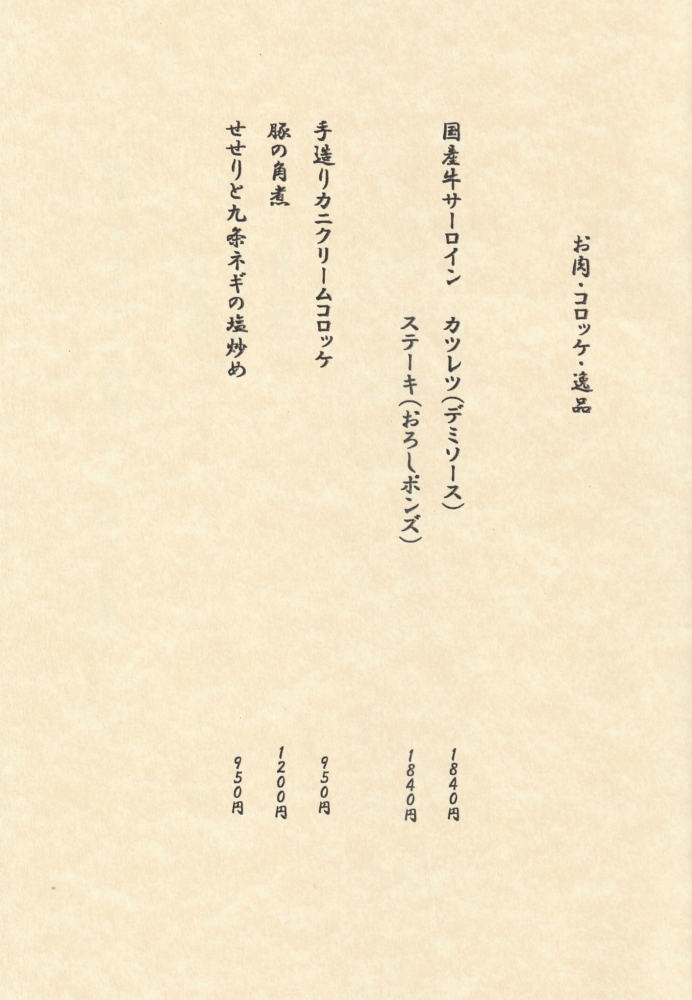 お肉・コロッケ・逸品
国産牛サーロイン　カツレツ(デミソース)　1840円
ステーキ(おろしポンズ)　1840円
手造りカニクリームコロッケ　950円
豚の角煮　1200円
せせりと九条ネギの塩炒め　950円